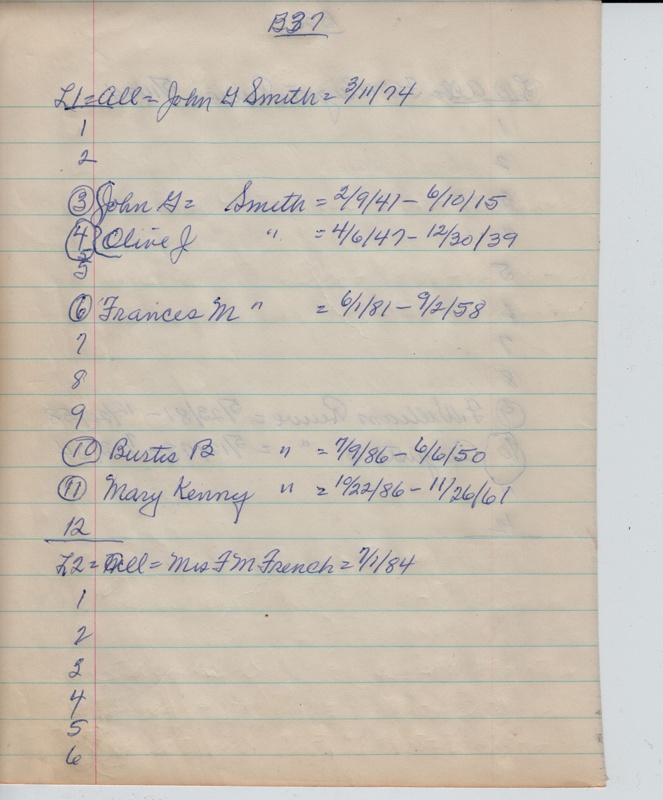 B37
L1 = All = John G Smith = 3/11/74
1
2
③ John G = Smith = 2/9/41 - 6/10/15
④ Olive J " = 4/6/47 - 12/30/39
5
⑥ Frances M " = 6/1/81 - 9/2/58
7
8
9
⑩ Burtis B " = 7/9/86 - 6/6/50
⑪ Mary Kenny " = 10/22/86 - 11/26/61
12
L2 = All = Mrs F M French = 7/1/84
1
2
3
4
5
6